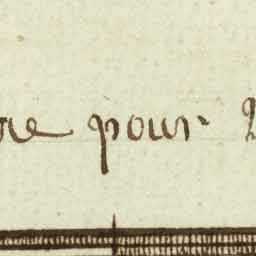 re pour